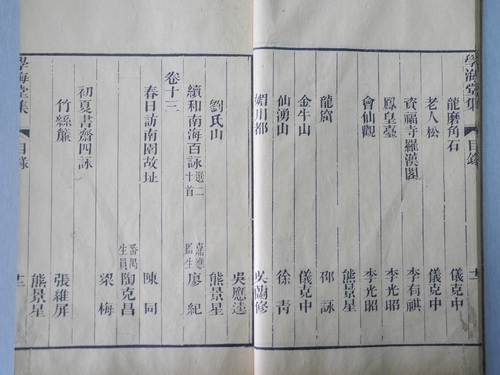 學海堂集 目錄 十一
龍磨角石 儀克中
老人松 儀克中
資福寺羅漢閣 李有祺
鳳皇臺 李光昭
會仙觀 李光昭
熊景星
龍窟 詠
金牛山 儀克中
仙湧山 徐青
媚川都 吳蘭修
吳應逵
劉氏山 熊景星
續和南海百詠 選二十首 嘉應監生 廖紀
卷十三
春日訪南園故址 陳同
番禺生員 陶克昌
初夏書齋四詠 梁梅
竹絲簾 張維屏
熊景星
學海堂集 目錄 十二